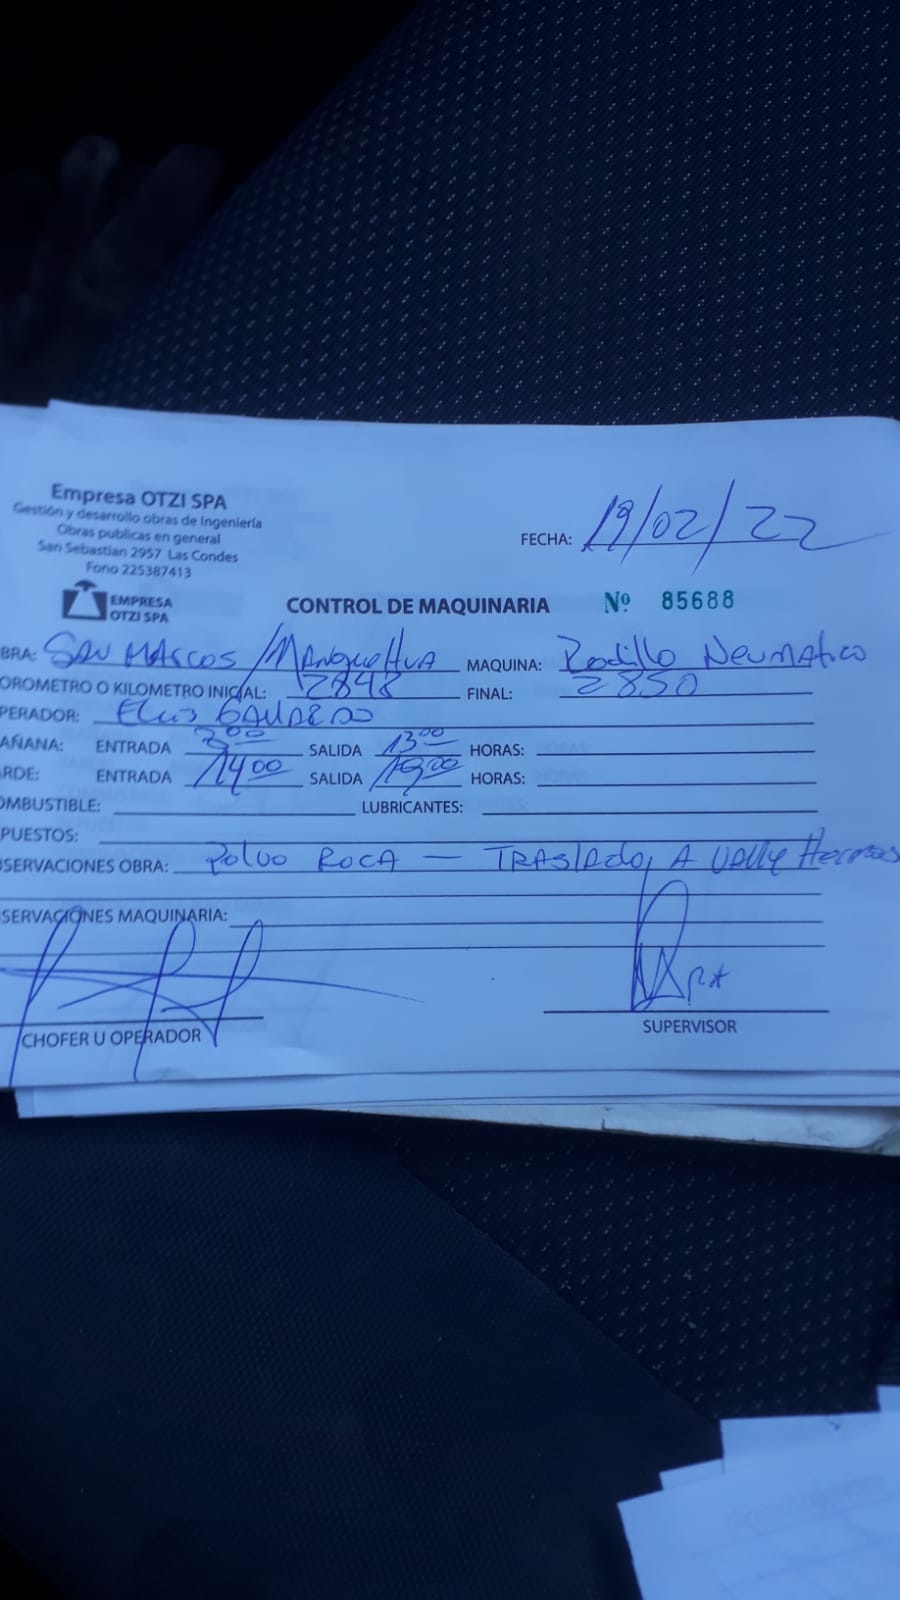 Empresa OTZI SPA
Gestión y desarrollo obras de Ingeniería
Obras publicas en general
San Sebastian 2957 Las Condes
Fono 225387413
EMPRESA
OTZI SPA
FECHA: 19/02/22
CONTROL DE MAQUINARIA Nº 85688
BRA: SAN MARCOS / MANQUEHUA MAQUINA: Rodillo Neumatico
OROMETRO O KILOMETRO INICIAL: 2848 FINAL: 2850
PERADOR:
AÑANA: ENTRADA 8:00 SALIDA 13:00 HORAS:
RDE: ENTRADA 14:00 SALIDA HORAS:
OMBUSTIBLE: LUBRICANTES:
PUESTOS:
SERVACIONES OBRA: Polvo ROCA — TRASLADO A VALLE
SERVACIONES MAQUINARIA:
CHOFER U OPERADOR
SUPERVISOR